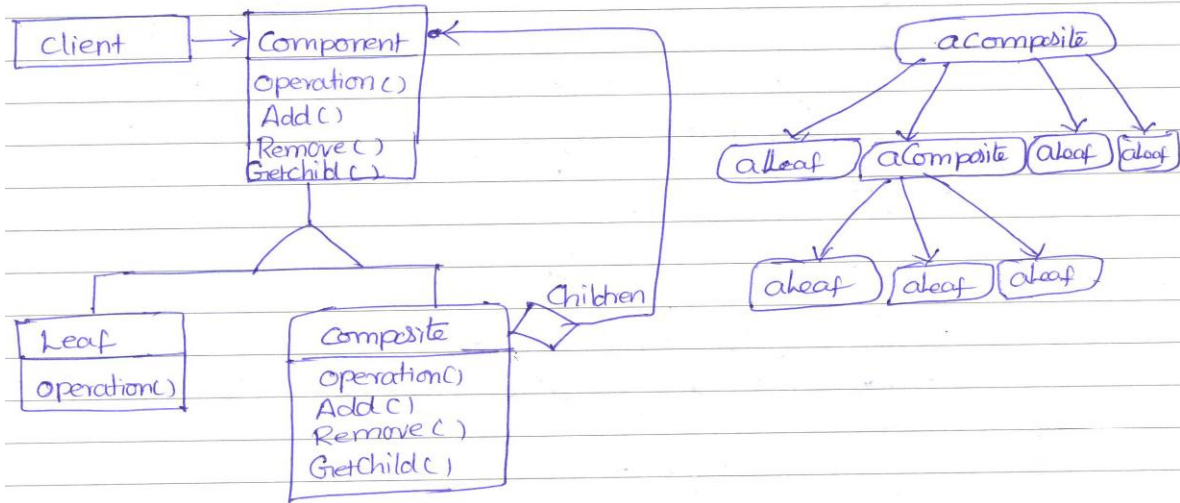 Client
Component
Operation()
Add()
Remove()
GetChild()
Leaf
Operation()
Children
Composite
Operation()
Add()
Remove()
GetChild()
aComposite
aLeaf
aComposite
aLeaf
aLeaf
aLeaf
aLeaf
aLeaf